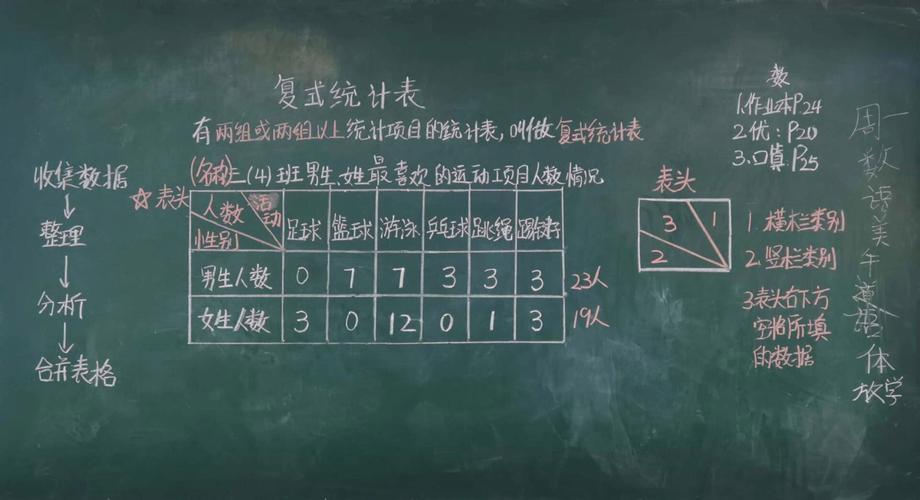 复式统计表
有两组或两组以上统计项目的统计表,叫做复式统计表
(名称)三(4)班男生、女生最喜欢的运动项目人数情况
收集数据
↓
整理
↓
分析
↓
合并表格
☆表头
人数 活动 性别 足球 篮球 游泳 乒乓球 跳绳 踢毽子
男生人数 0 7 7 3 3 3 23人
女生人数 3 0 12 0 1 3 19人
表头
3 1
2
1.横栏类别
2.竖栏类别
3.表头右下方
空格所填
的数据
数
1.作业本P24
2.优:P20
3.口算P25
周一
数
语
美
午
道
体
放学